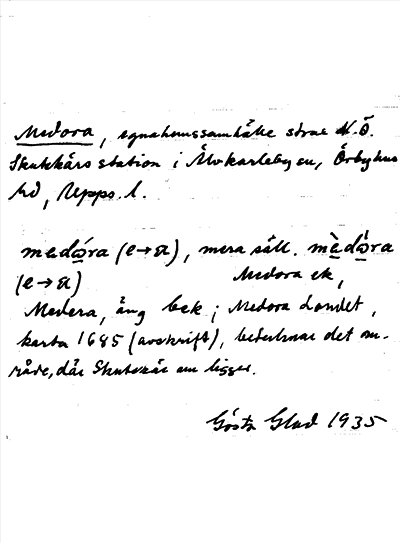 Medora, egnahemssamhälle strax N.Ö.
Skutskärs station i Älvkarleby sn, Örbyhus
hd, Upps. l.
medóra (e→ä), mera säll. mèdåra
(e→ä) Medora ek,
Medera, äng bek; Medora Landet,
karta 1685 (avskrift), betecknar det om-
råde, där Skutskär nu ligger.
Gösta Glad 1935